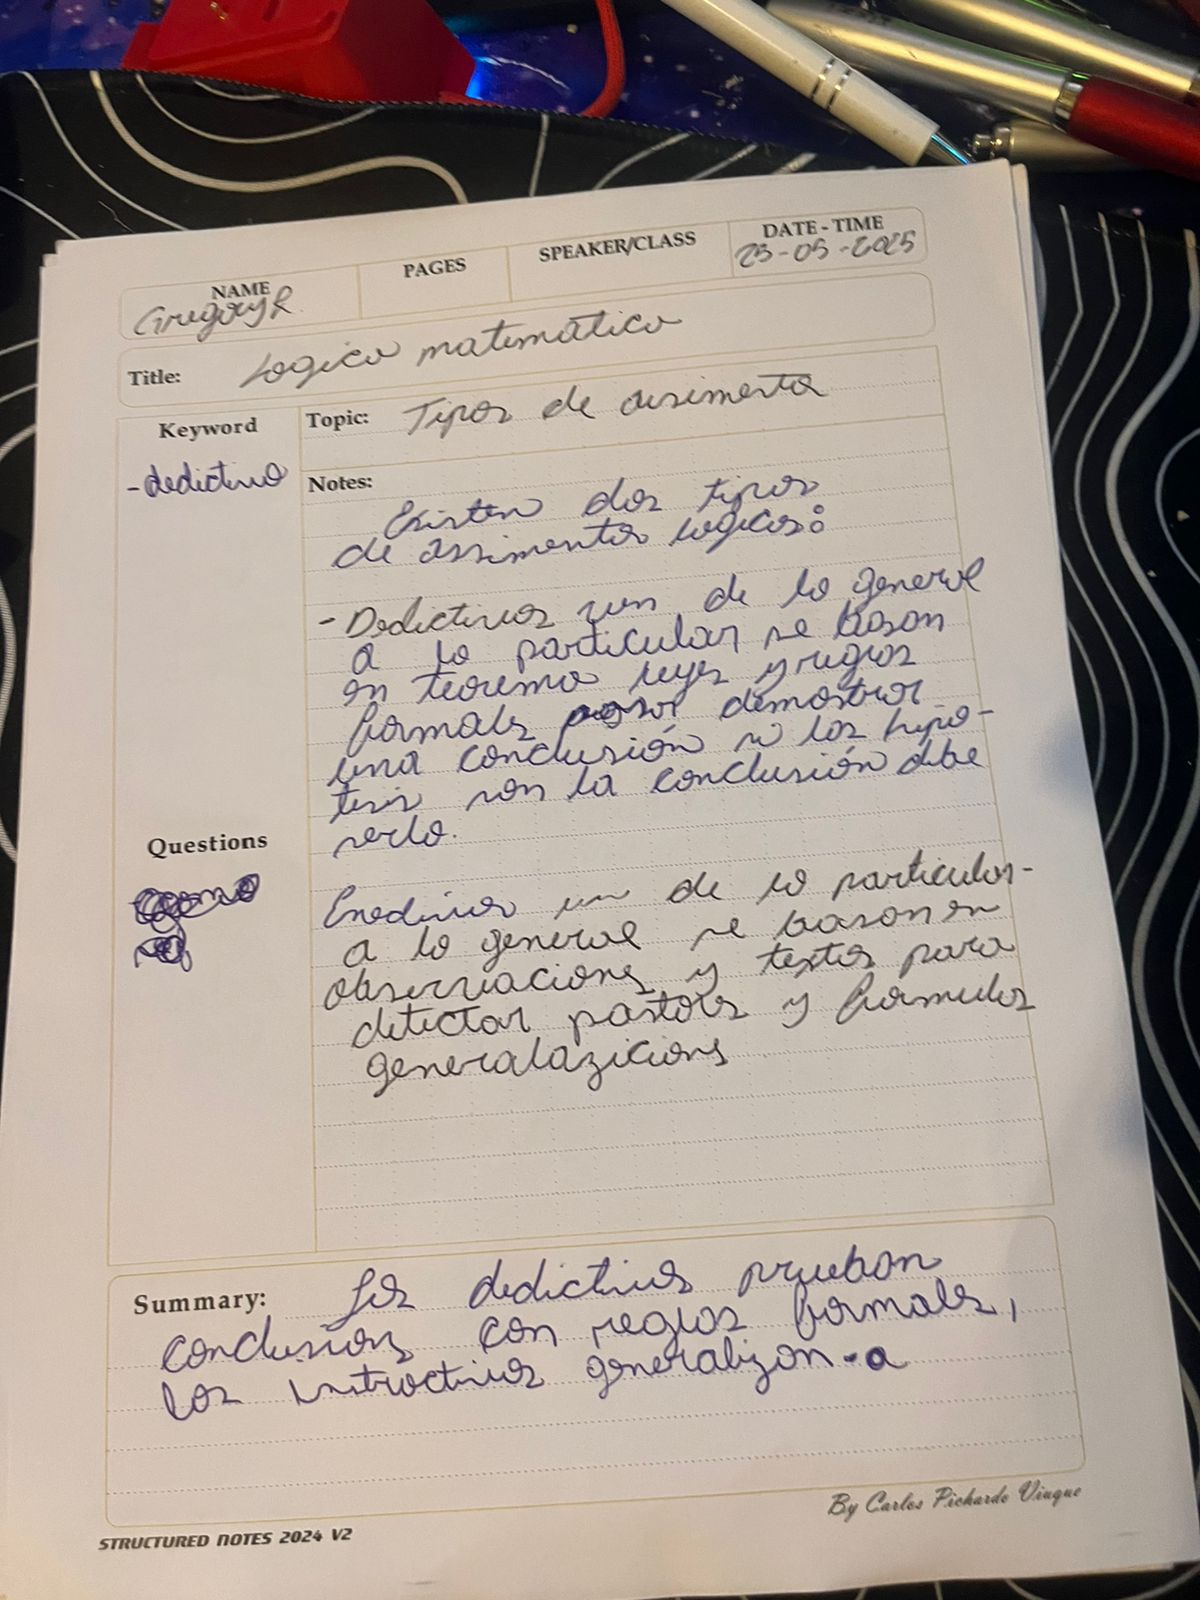 NAME
GregoryR
PAGES
SPEAKER/CLASS
DATE - TIME
23-05-2025
Title: Logico matemático
Keyword
-dedictivo
Topic: Tipos de
Notes:
Existen dos tipos
de assimentos logicos:
- Dedictivos van de lo general
a lo particular se bason
en teorema leyes y reglas
formals demostror
una conclusión si los hipo-
tesis son la conclusión debe
serlo.
Questions
de lo particular-
a lo general se bason en
observacions y textos para
detectar y formulos
generalazicions
Summary: Los dedictivos prueban
conclusions con reglos formals,
los generalizon
By Carlos Pichardo Viuque
STRUCTURED NOTES 2024 V2